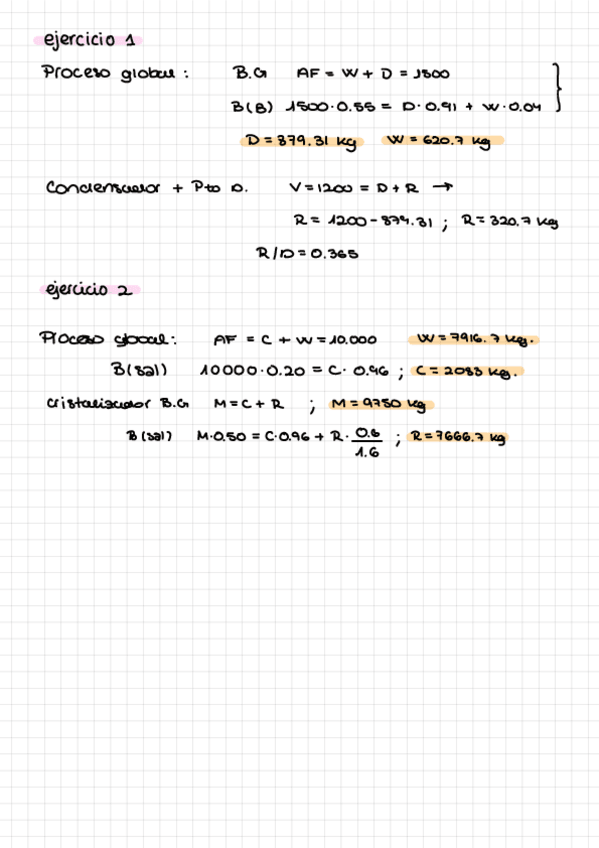 ejercicio 1
Proceso global: B.G AF = W + D = 1500
B(B) 1500·0.55 = D·0.91 + W·0.04
D = 879.31 kg W = 620.7 kg
Condensador + Pto D. V = 1200 = D + R →
R = 1200 - 879.31 ; R = 320.7 kg
R/D = 0.365
ejercicio 2
Proceso global: AF = C + W = 10.000 W = 7916.7 kg.
B(sal) 10000·0.20 = C·0.96 ; C = 2083 kg.
Cristalizador B.G M = C + R ; M = 9750 kg
B(sal) M·0.50 = C·0.96 + R·0.6/1.6 ; R = 7666.7 kg